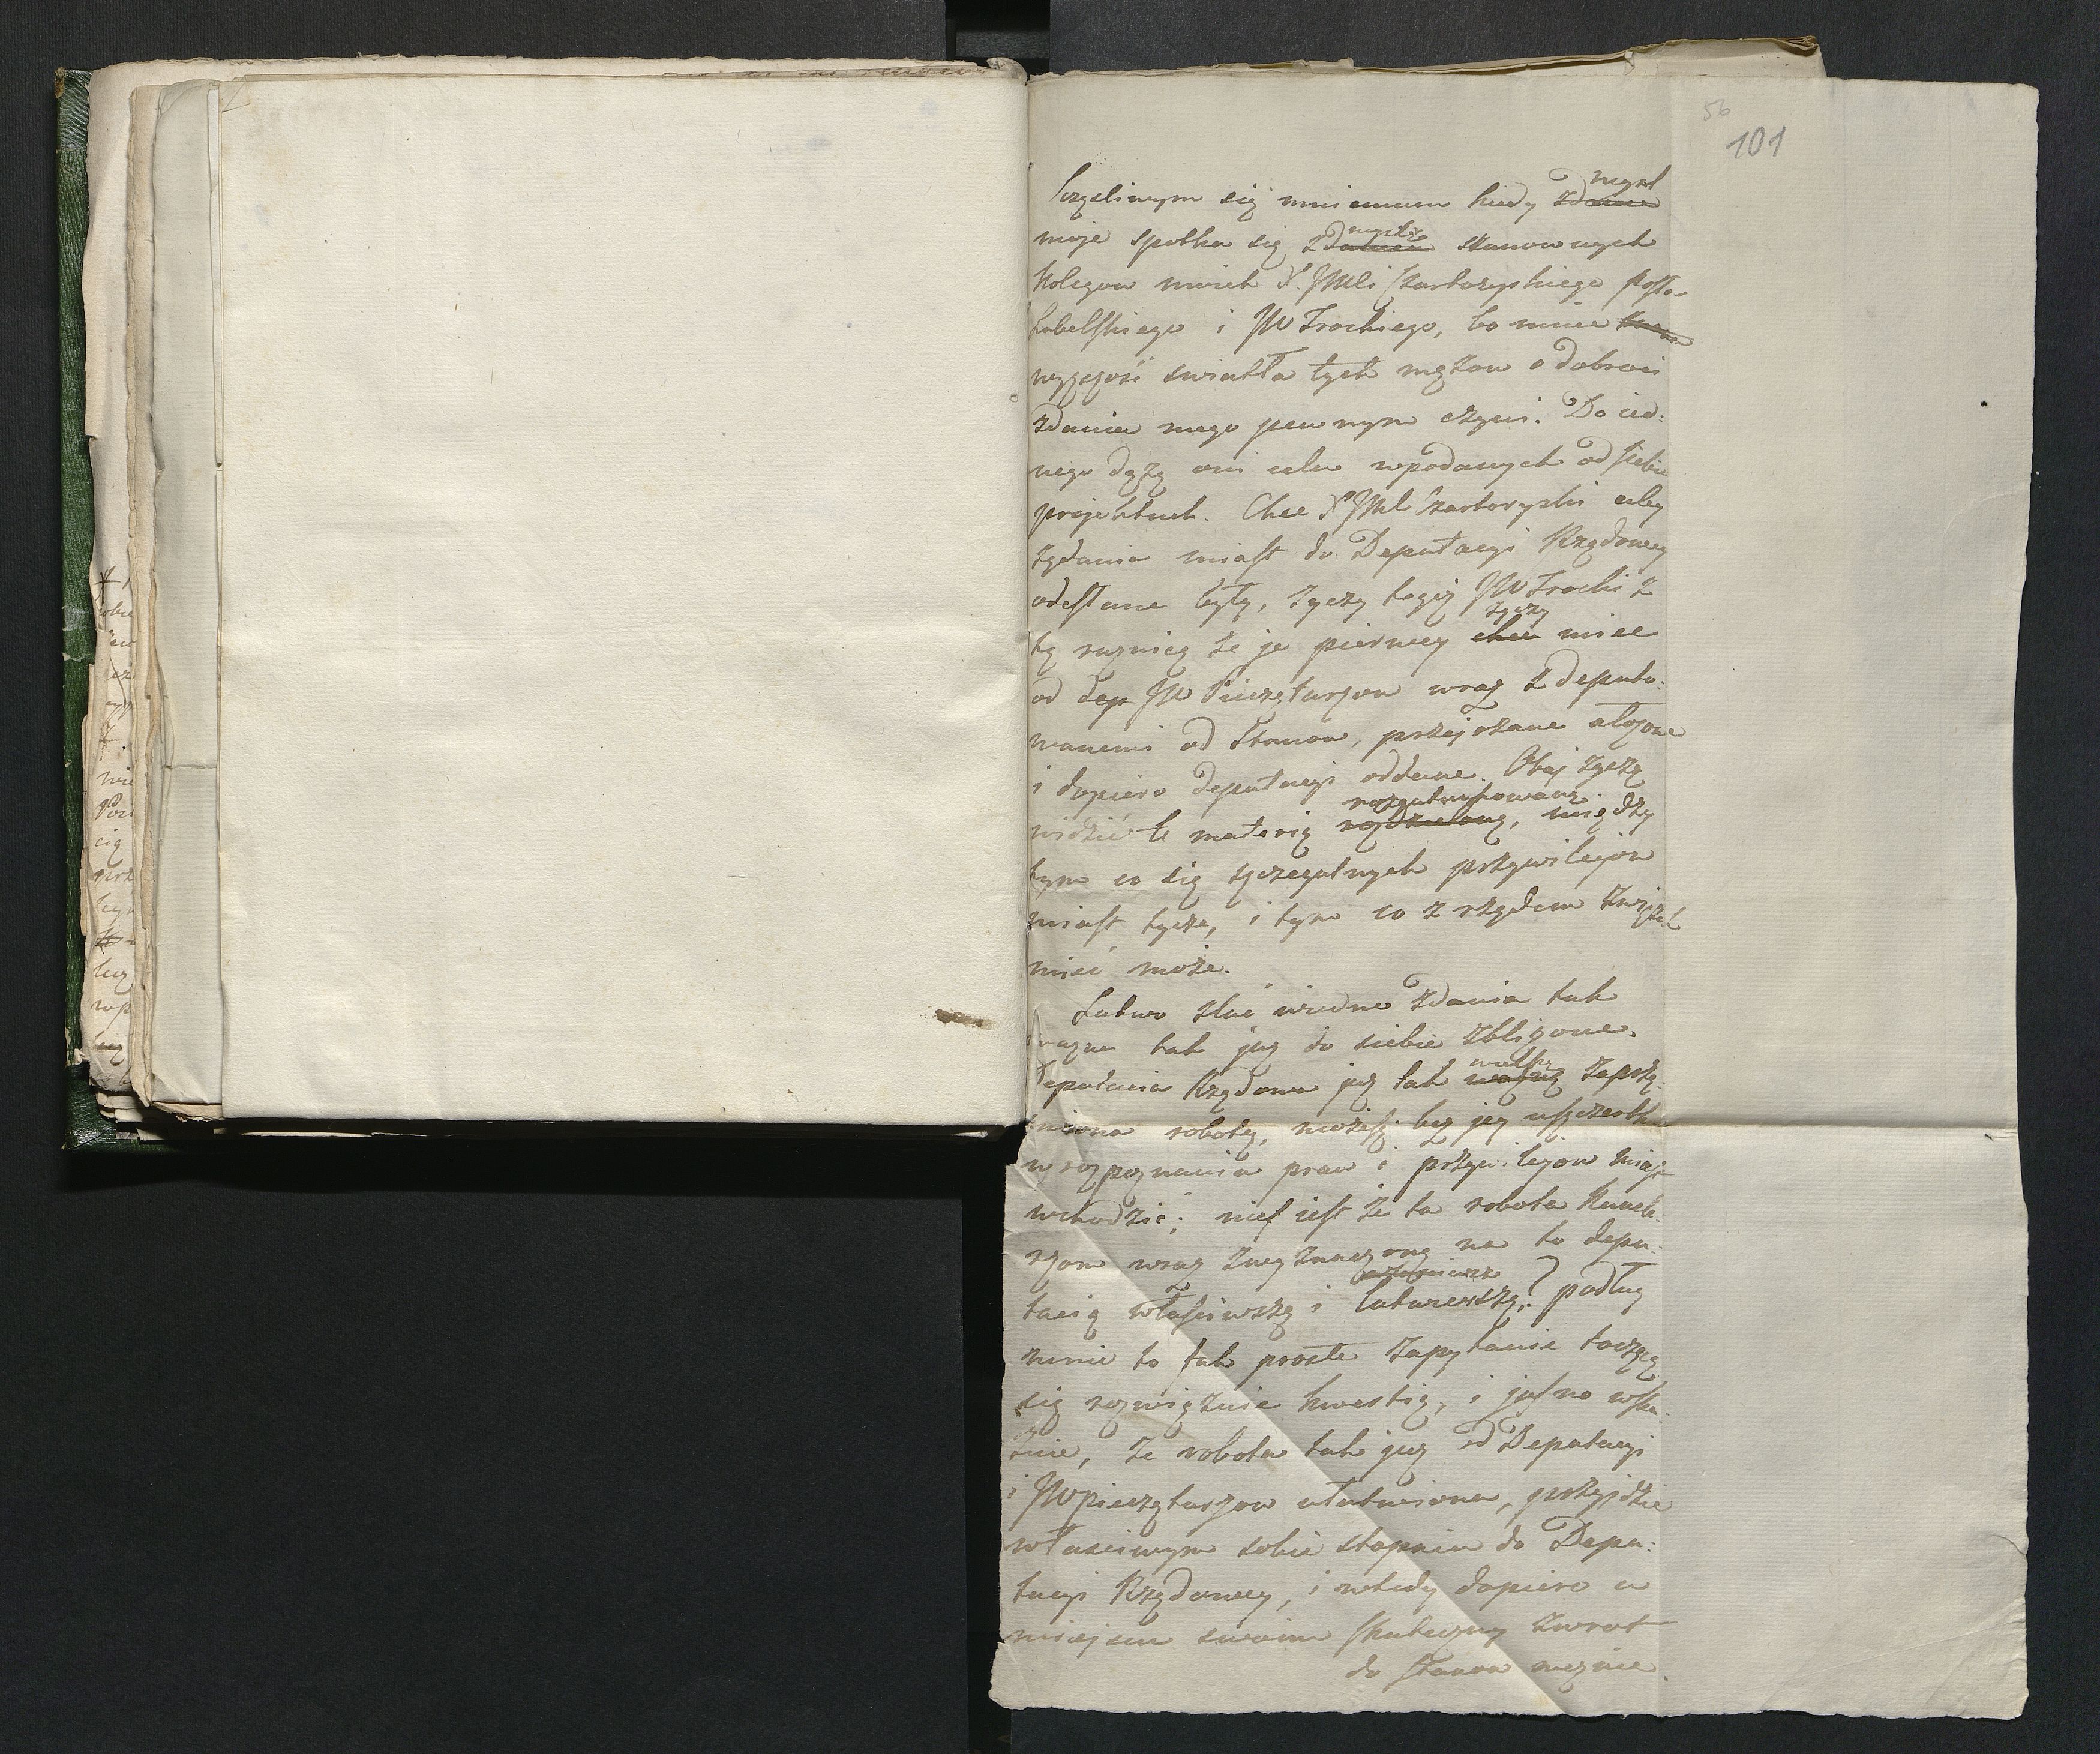 56
101
Szczęsliwym się mniemam kiedy zdanie mysl
moje spotka się zdaniem myslą szanownych
Kolegow moich X. JMci Czartoryskiego Posła
Lubelskiego i JW Trockiego, bo mnie
wyższość swiatła tych mężow o dobroci
zdania mego pewnym czyni. Do ied:
nego dążą oni celu wpodanych od siebie
projektach. Chce X JMC Czartoryski aby
żądania miast do Deputacyi Rządowey
odesłane były, życzy tegoż JW Trocki z
tą rożnicą że je pierwey chce życzy miec
od Dep JW Pieczętarzow wraz z deputo:
wanemi od Stanow, przejrzane ułożone
i dopiero Deputacyi oddane. Obaj życzą
widzić te materię rozdzieloną rozgatunkowaną, między
tym co się szczegulnych przywilejow
miast tycze, i tym co z rządem związek
mieć może.
Łatwo zlać w iedno zdania tak
tak już do siebie zbliżone.
Deputacia Rządowa już tak ważną wielką zaprzą:
tniona robotą, możesz bez jey uszczerbku
w rozpoznania praw i przywilejow miast
wchodzić; nie jest że ta robota Kancle:
rzom wraz z wyznaczoną na to depu:
tacią właściwszą i łatwieyszą? podług
mnie to tak proste zapytanie toczącą
się rozwiąznie kwestią, i jasno wska:
żnie, że robota tak już od Deputacyi
i JW pieczętarzow ułatwiona, przyjdzie
właściwym sobie stopniem do Depu:
tacyi Rządowey, i wtedy dopiero w
miejscu swoim skuteczny zwrot
do stanow wezmie.